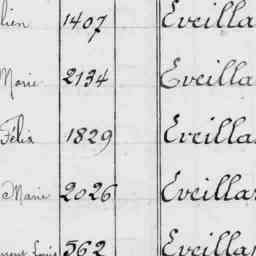 lien 1407 Eveilla
Marie 2134 Eveilla
Félix 1829 Eveilla
Marie 2026 Eveillar
Louis 562 Eveillar